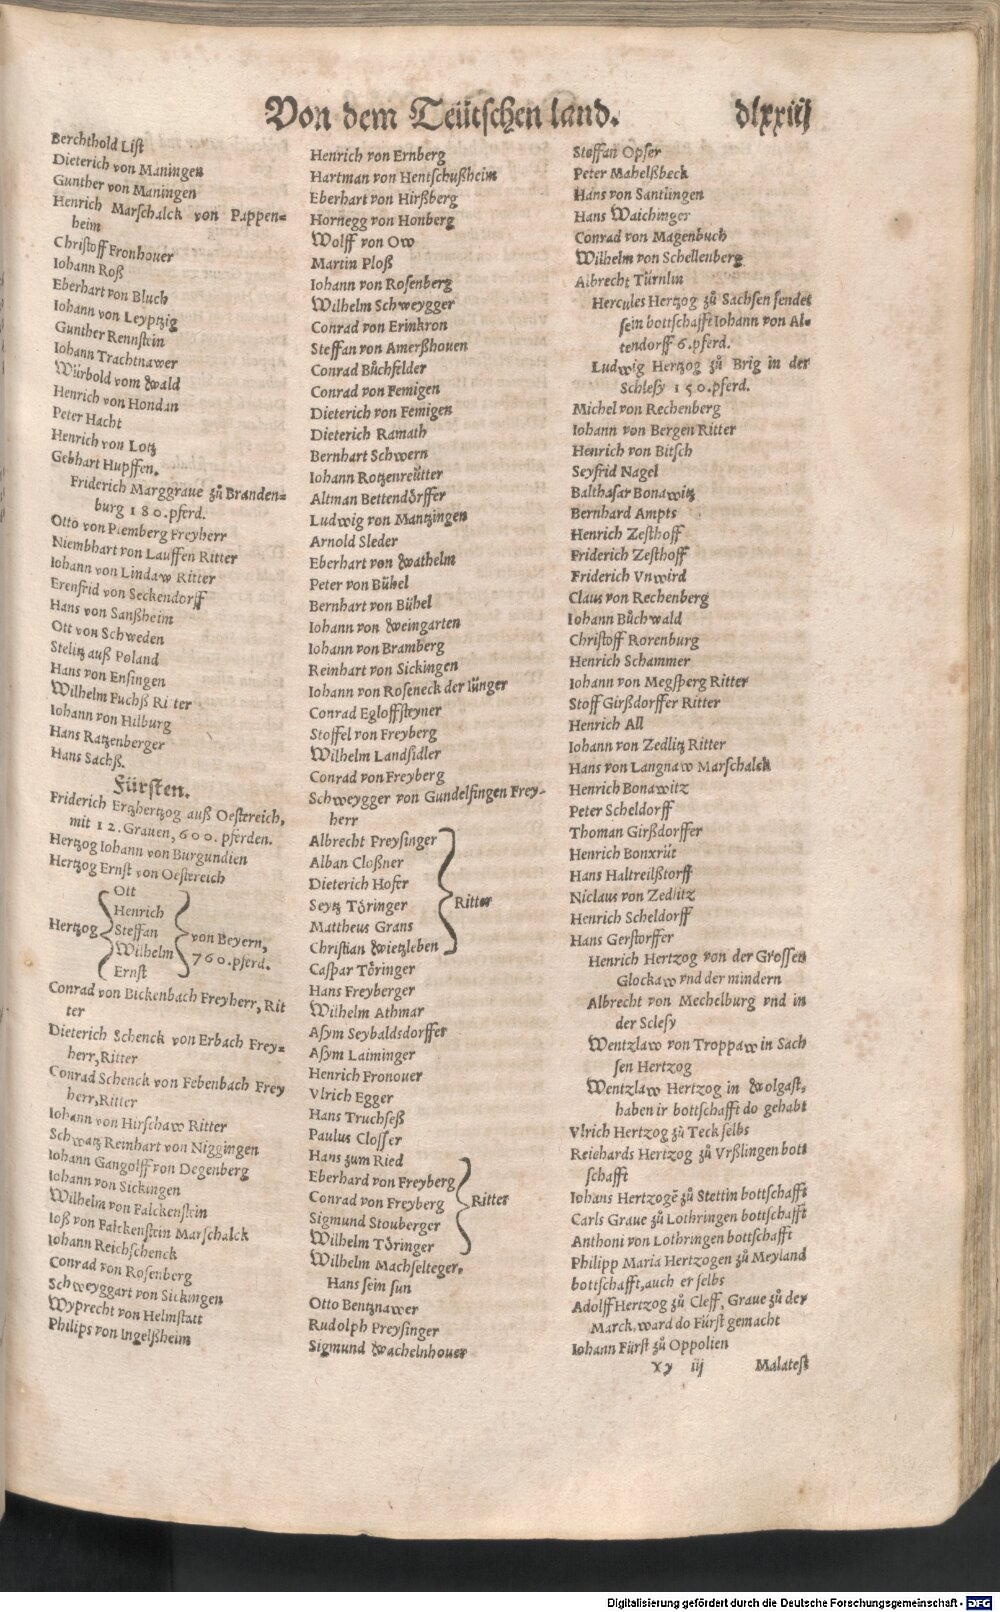 Von dem Teütschen land.
dlxxiij
Berchthold List
Dieterich von Maningen
Gunther von Maningen
Henrich Marschalck von Pappen=
heim
Christoff Fronhouer
Iohann Roß
Eberhart von Bluch
Iohann von Leyptzig
Gunter Rennstein
Iohann Trachtnawer
Würbold vom Wald
Henrich von Hondan
Peter Hacht
Henrich von Lotz
Gebhart Hupffen.
Friderich Marggraue zů Branden=
burg 180. pferd.
Otto von Plemberg Freyherr
Niembhart von Lauffen Ritter
Iohann von Lindaw Ritter
Erenfrid von Seckendorff
Hans von Sanßheim
Ott von Schweden
Stelitz auß Poland
Hans von Ensingen
Wilhelm Fuchß Ritter
Iohann von Hilburg
Hans Ratzenberger
Hans Sachß.
Fürsten.
Friderich Ertzhertzog auß Oestereich,
mit 12. Grauen, 600. pferden.
Hertzog Iohann von Burgundien
Hertzog Ernst von Oestereich
Hertzog
Ott
Henrich
Steffan
Wilhelm
Ernst
von Beyern,
760. pferd.
Conrad von Bickenbach Freyherr, Rit
ter
Dieterich Schenck von Erbach Frey=
herr, Ritter
Conrad Schenck von Febenbach Frey
herr, Ritter
Iohann von Hirschaw Ritter
Schwatz Reinhart von Niggingen
Iohann Gangolff von Degenberg
Iohann von Sickingen
Wilhelm von Falckenstein
Ioß von Falckenstein Marschalck
Iohann Reichschenck
Conrad von Rosenberg
Schweyggart von Sickingen
Wyprecht von Helmstatt
Philips von Ingelßheim
Henrich von Ernberg
Hartman von Hentschußheim
Eberhart von Hirßberg
Hornegg von Honberg
Wolff von Ow
Martin Ploß
Iohann von Rosenberg
Wilhelm Schweygger
Conrad von Erinkron
Steffan von Amerßhouen
Conrad Bůchfelder
Conrad von Femigen
Dieterich von Femigen
Dieterich Ramath
Bernhart Schwern
Iohann Rotzenreütter
Altman Bettendörffer
Ludwig von Mantzingen
Arnold Sleder
Eberhart von Wathelm
Peter von Bühel
Bernhart von Bühel
Iohann von Weingarten
Iohann von Bramberg
Reinhart von Sickingen
Iohann von Roseneck der Iünger
Conrad Egloffsteyner
Stoffel von Freyberg
Wilhelm Landsidler
Conrad von Freyberg
Schweygger von Gundelfingen Frey-
herr
Albrecht Preysinger
Alban Cloßner
Dieterich Hofer
Seytz Töringer
Mattheus Grans
Christian Wietzleben
Ritter
Caspar Töringer
Hans Freyberger
Wilhelm Athmar
Asym Seybaldsdorffer
Asym Laiminger
Henrich Fronouer
Vlrich Egger
Hans Truchseß
Paulus Closser
Hans zum Ried
Eberhard von Freyberg
Conrad von Freyberg
Sigmund Stouberger
Wilhelm Töringer
Ritter
Wilhelm Machselteger,
Hans sein sun
Otto Bentznawer
Rudolph Preysinger
Sigmund Wachelnhouer
Steffan Opser
Peter Mahelßbeck
Hans von Santüngen
Hans Waichinger
Conrad von Magenbuch
Wilhelm von Schellenberg
Albrecht Türnlin
Hercules Hertzog zů Sachsen sendet
sein bottschafft Iohann von Al-
tendorff 6. pferd.
Ludwig Hertzog zů Brig in der
Schlesy 150. pferd.
Michel von Rechenberg
Iohann von Bergen Ritter
Henrich von Bitsch
Seyfrid Nagel
Balthasar Bonawitz
Bernhard Ampts
Henrich Zesthoff
Friderich Zesthoff
Friderich Vnwird
Claus von Rechenberg
Iohann Bůchwald
Christoff Rorenburg
Henrich Schammer
Iohann von Megsperg Ritter
Stoff Girßdorffer Ritter
Henrich All
Iohann von Zedlitz Ritter
Hans von Langnaw Marschalck
Henrich Bonawitz
Peter Scheldorff
Thoman Girßdorffer
Henrich Bonxrüt
Hans Haltreilßtorff
Niclaus von Zedlitz
Henrich Scheldorff
Hans Gerstorffer
Henrich Hertzog von der Grossen
Glockaw vnd der mindern
Albrecht von Mechelburg vnd in
der Sclesy
Wentzlaw von Troppaw in Sach
sen Hertzog
Wentzlaw Hertzog in Wolgast,
haben ir bottschafft do gehabt
Vlrich Hertzog zů Teck selbs
Reichards Hertzog zů Vrßlingen bott
schafft
Iohans Hertzogē zů Stettin bottschafft
Carls Graue zů Lothringen bottschafft
Anthoni von Lothringen bottschafft
Philipp Maria Hertzogen zů Meyland
bottschafft, auch er selbs
Adolff Hertzog zů Cleff, Graue zů der
Marck, ward do Fürst gemacht
Iohann Fürst zů Oppolien
Yy iij
Malatest
Digitalisierung gefördert durch die Deutsche Forschungsgemeinschaft - DFG